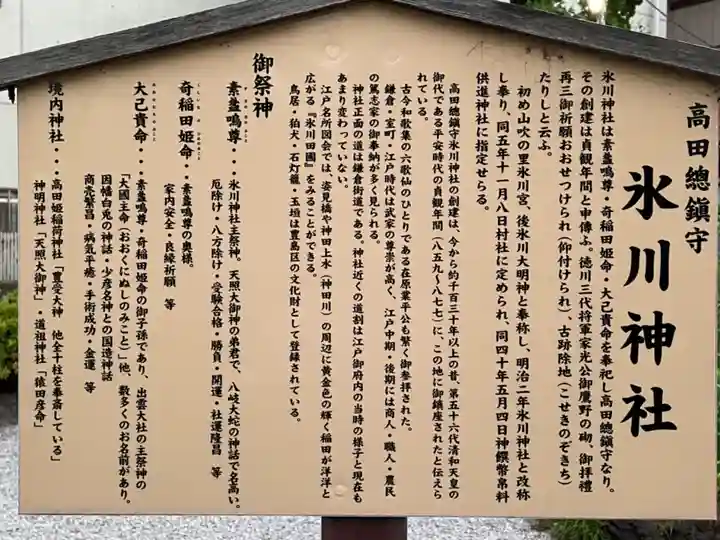 高田總鎮守
氷川神社
氷川神社は素盞鳴尊・奇稲田姫命・大己貴命を奉祀し高田總鎮守なり。
その創建は貞観年間と申傳ふ。徳川三代将軍家光公御鷹野の砌、御拝禮
再三御祈願おおせつけられ（仰付けられ）、古跡除地（こせきのぞきち）
たりしと云ふ。
初め山吹の里氷川宮、後氷川大明神と奉称し、明治二年氷川神社と改称
し奉り、同五年十一月八日村社に定められ、同四十年五月四日神饌幣帛料
供進神社に指定せらる。
高田總鎮守氷川神社の創建は、今から約千百三十年以上の昔、第五十六代清和天皇の
御代である平安時代の貞観年間（八五九～八七七）に、この地に御鎮座されたと伝えら
れている。
古今和歌集の六歌仙のひとりである在原業平公も繁く御参拝された。
鎌倉・室町・江戸時代は武家の尊崇が高く、江戸中期・後期には商人・職人・農民
の篤志家の御奉納が多く見られる。
神社正面の道は鎌倉街道である。神社近くの道割は江戸御府内の当時の様子と現在も
あまり変わっていない。
江戸名所図会では、姿見橋や神田上水（神田川）の周辺に黄金色の輝く稲田が洋洋と
広がる『氷川田圃』をみることができる。
鳥居・狛犬・石灯籠・玉垣は豊島区の文化財として登録されている。
御祭神
素盞鳴尊・・・氷川神社主祭神。天照大御神の弟君で、八岐大蛇の神話で名高い。
厄除け・八方除け・受験合格・勝負・開運・社運隆昌　等
奇稲田姫命・・・素盞鳴尊の奥様。
家内安全・良縁祈願　等
大己貴命・・・素盞鳴尊・奇稲田姫命の御子孫であり、出雲大社の主祭神の
「大國主命（おおくにぬしのみこと）」他、数多くのお名前があり。
因幡白兎の神話・少彦名神との国造神話
商売繁昌・病気平癒・手術成功・金運　等
境内神社・・・高田姫稲荷神社「豊受大神　他全十柱を奉斎している」
神明神社「天照大御神」・道祖神社「猿田彦命」